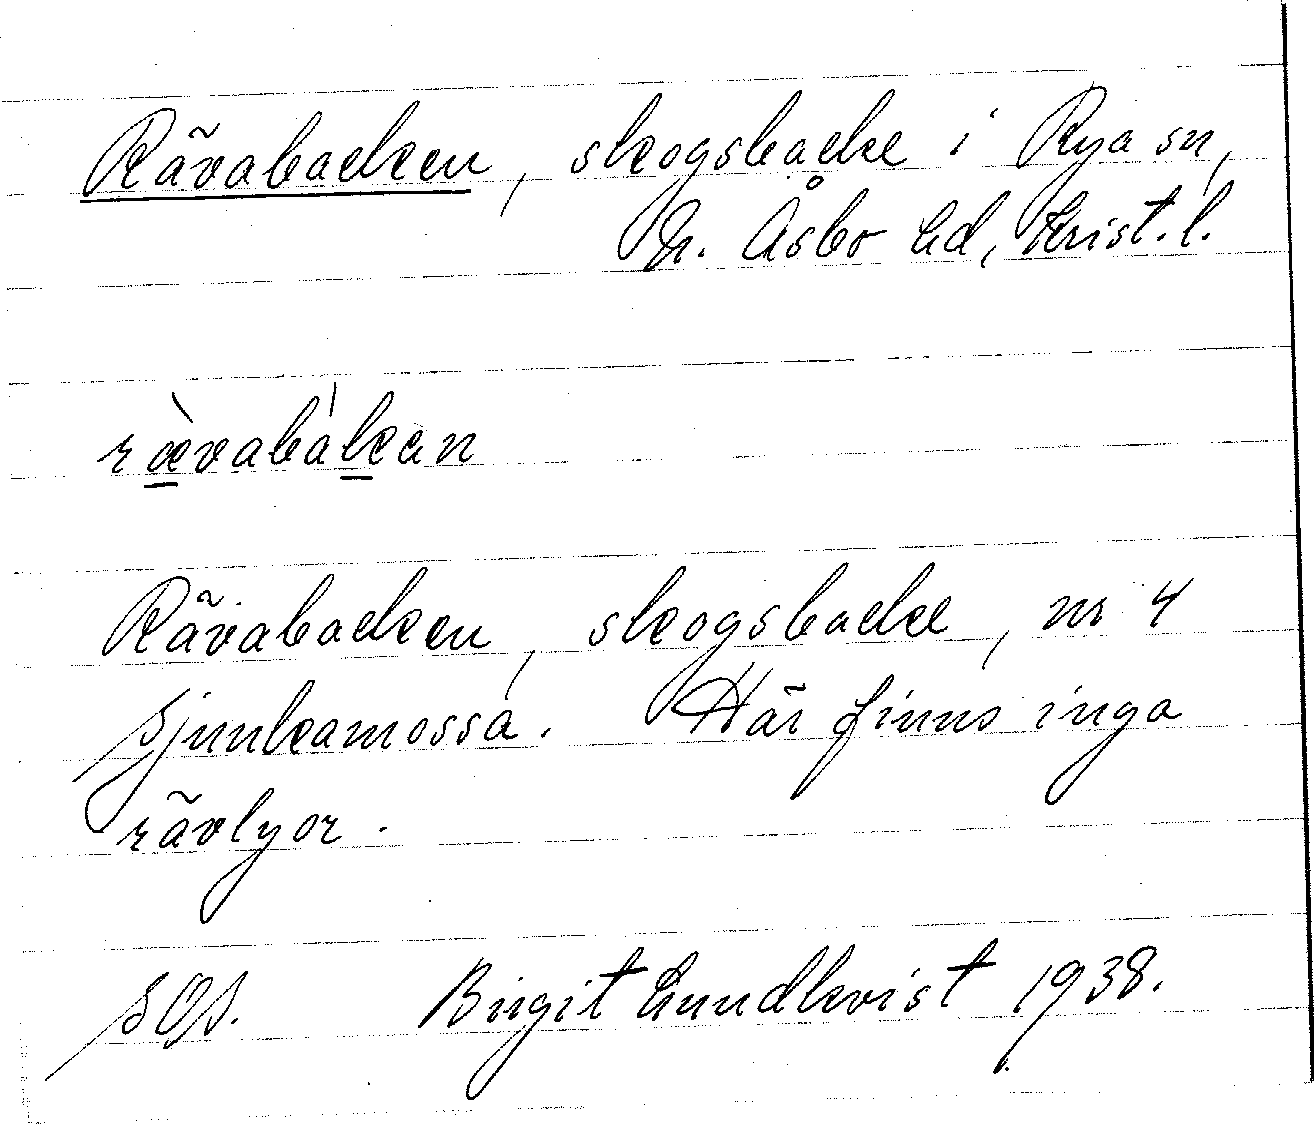 Rävabacken, skogsbacke i Rya sn,
N. Åsbo hd, Krist. l.
rævabakan
Rävabacken, skogsbacke, nr 4
Sjunkamossa. Här finns inga
rävlyor.
SOS. Birgit Lundkvist 1938.